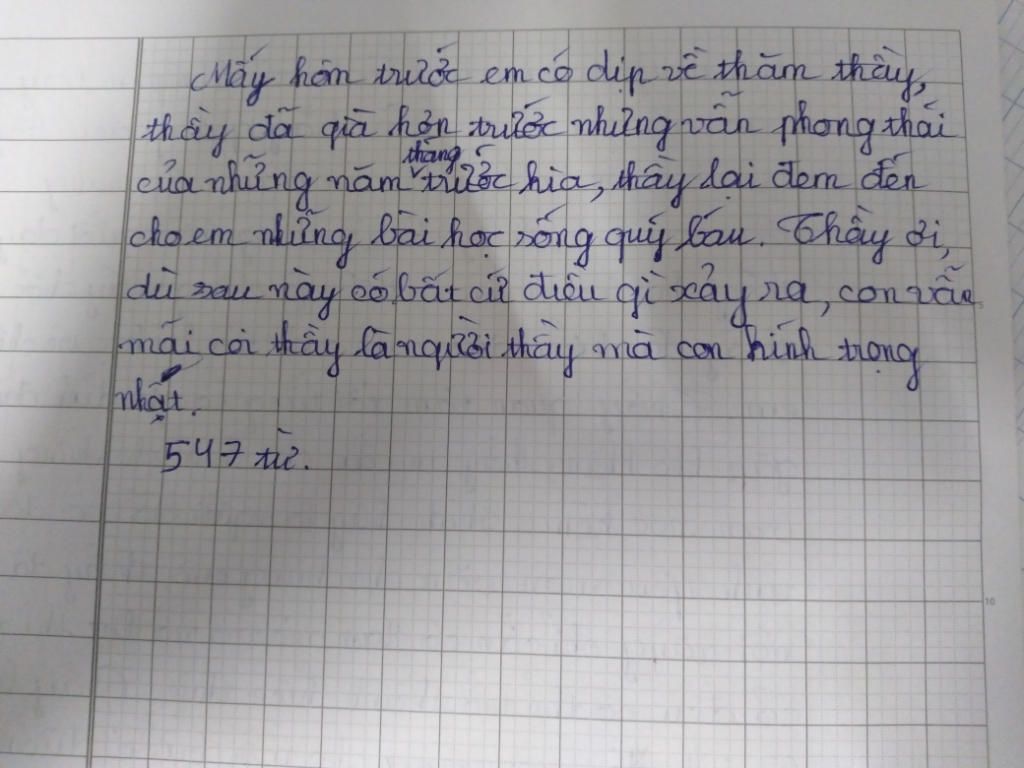 Mấy hôm trước em có dịp về thăm thầy,
thầy đã già hơn trước nhưng vẫn phong thái
của những năm tháng trước kia, thầy lại đem đến
cho em những bài học sống quý báu. Thầy ơi,
dù sau này có bất cứ điều gì xảy ra, con vẫn
mãi coi thầy là người thầy mà con kính trọng
nhất.
547 từ.
10